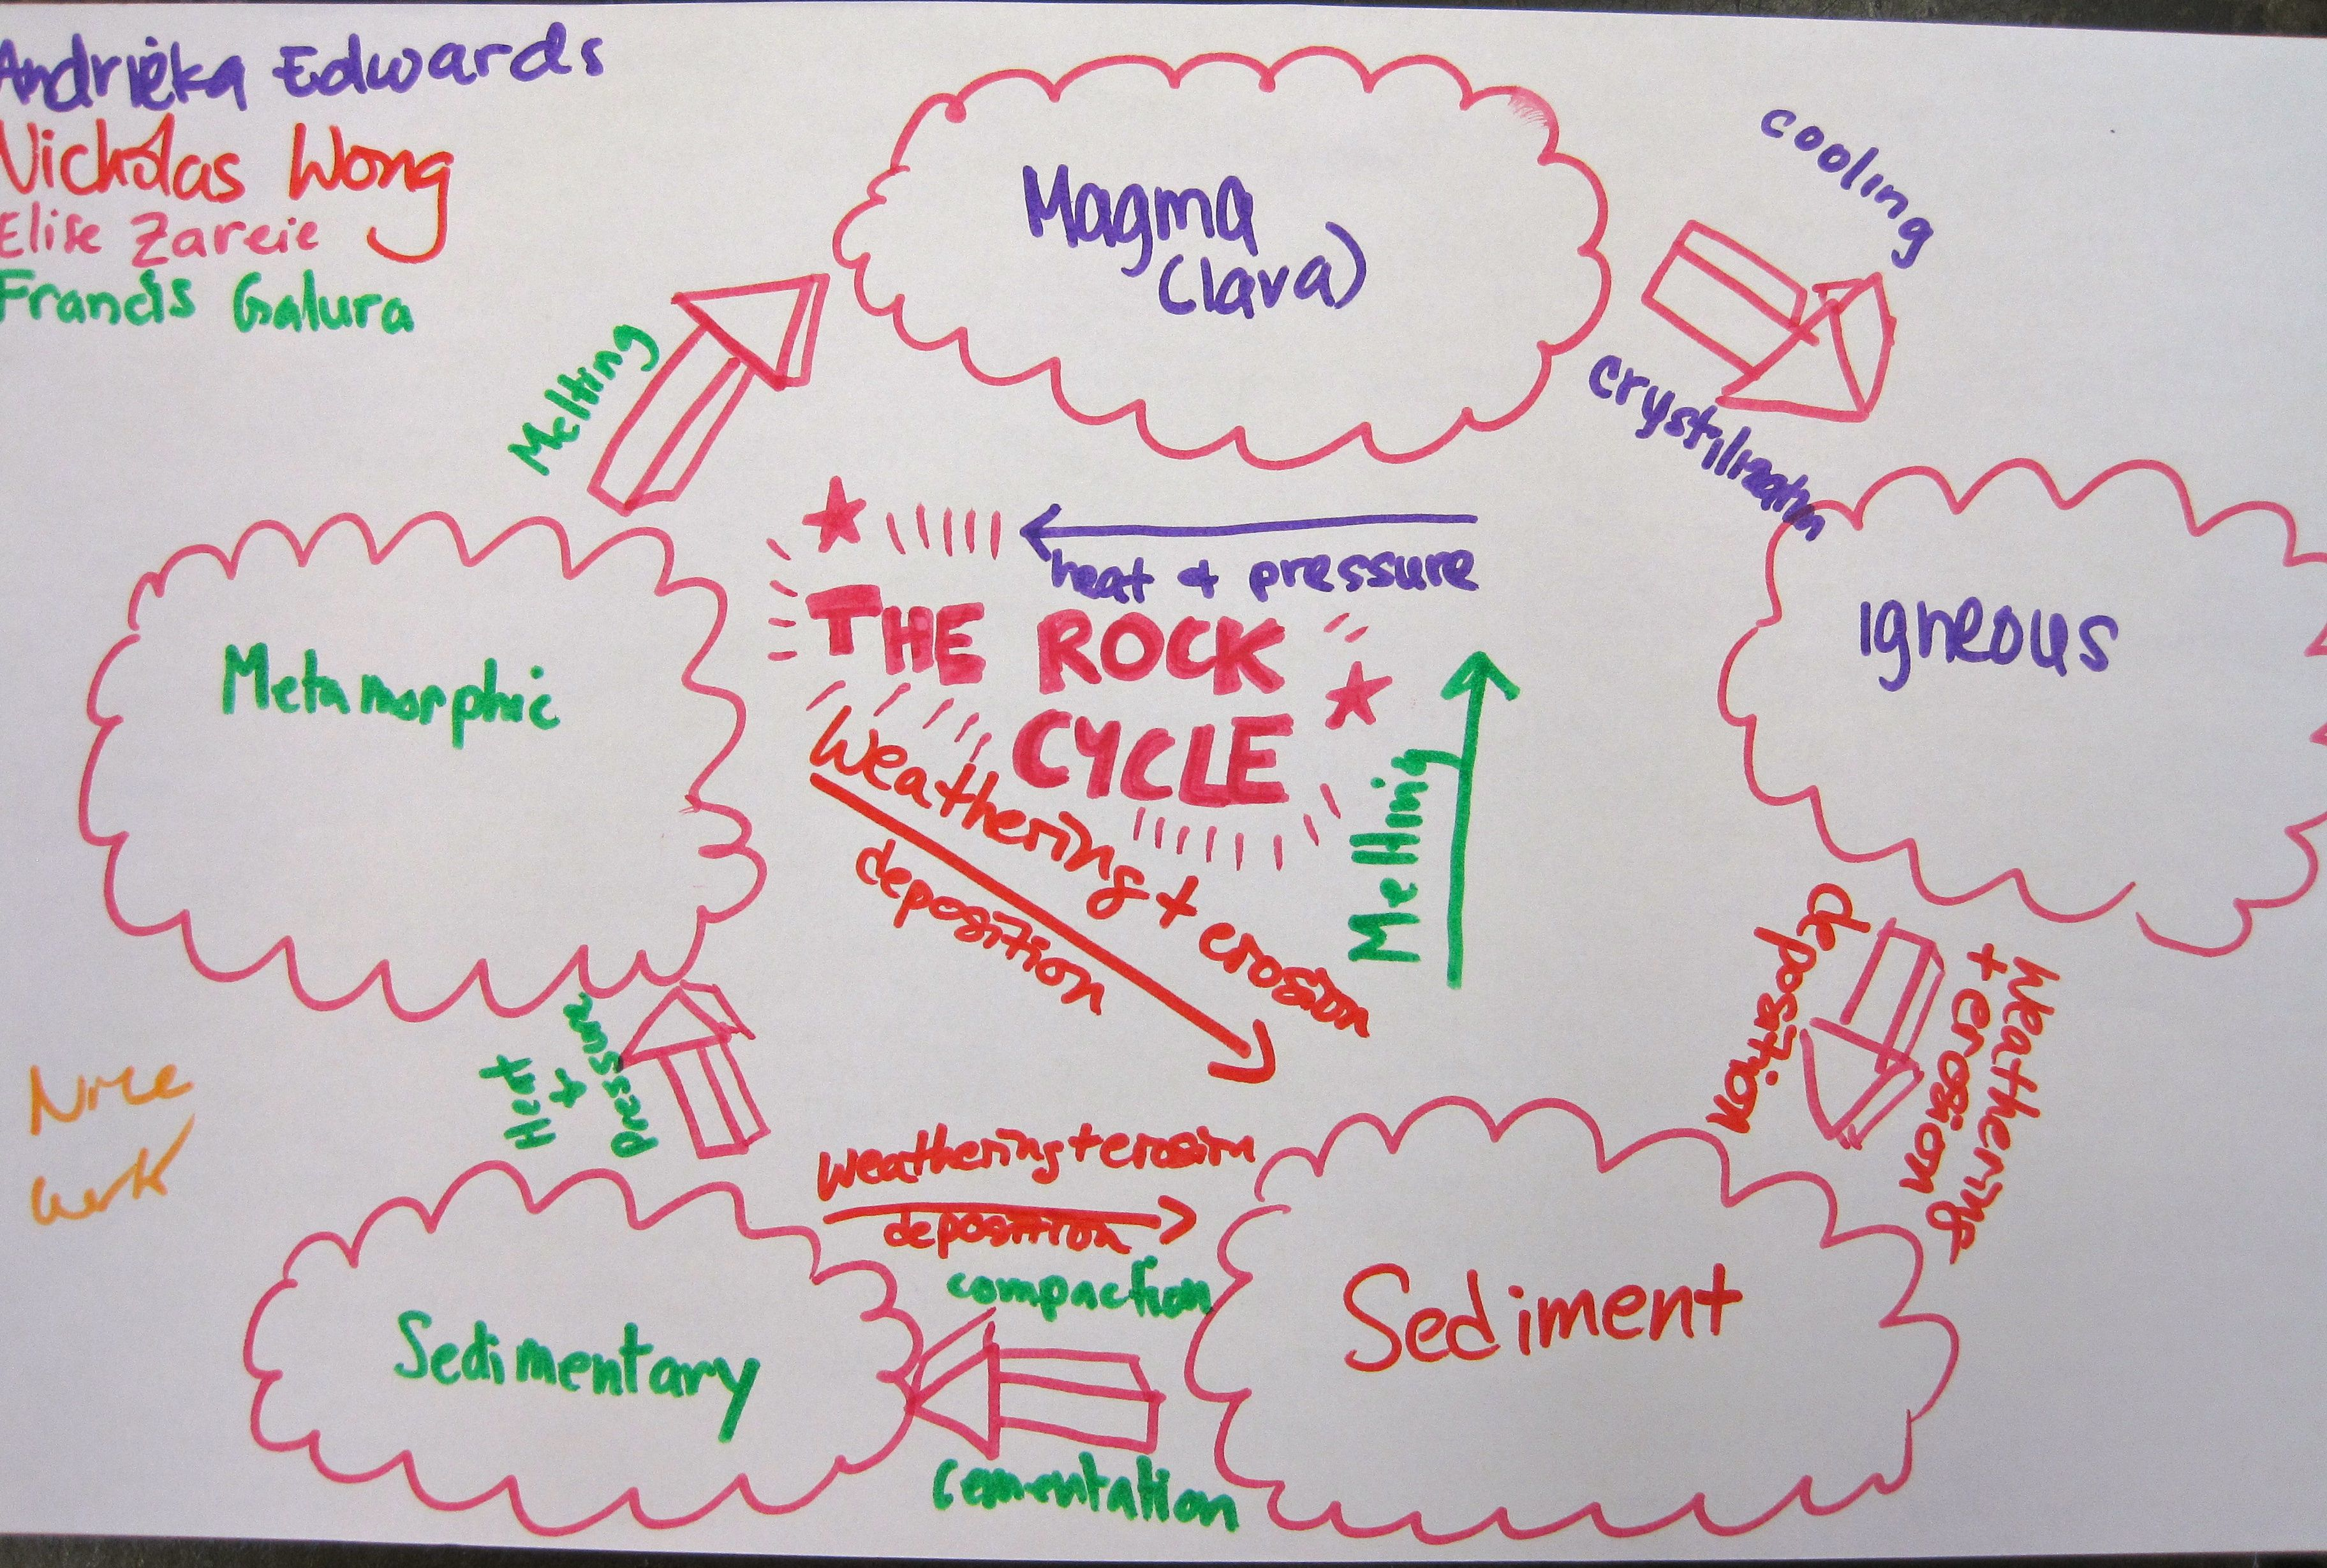 Andrieka Edwards
Nickolas Wong
Elise Zareie
Francis Galura
Magma
(lava)
cooling
crystilization
Melting
heat & pressure
THE ROCK
CYCLE
Metamorphic
igneous
Weathering + erosion
deposition
Melting
deposition
Weathering
+ erosion
Heat
+
pressure
Nice
work
Weathering + erosion
deposition
compaction
Sedimentary
Sediment
cementation